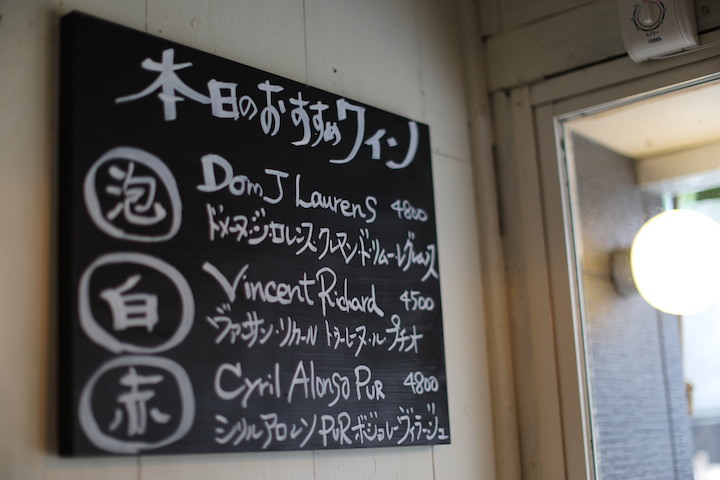 本日のおすすめワイン
泡
Dom J Laurens 4800
ドメーヌ・ジ・ロレンス・クレマン・ド・リムー・レ・グレムノス
白
Vincent Richard 4500
ヴァンサン・リカール トゥーレーヌ・ル・プチオ
赤
Cyril Alonso PUR 4800
シリル アロンソ PUR ボジョレーヴィラージュ